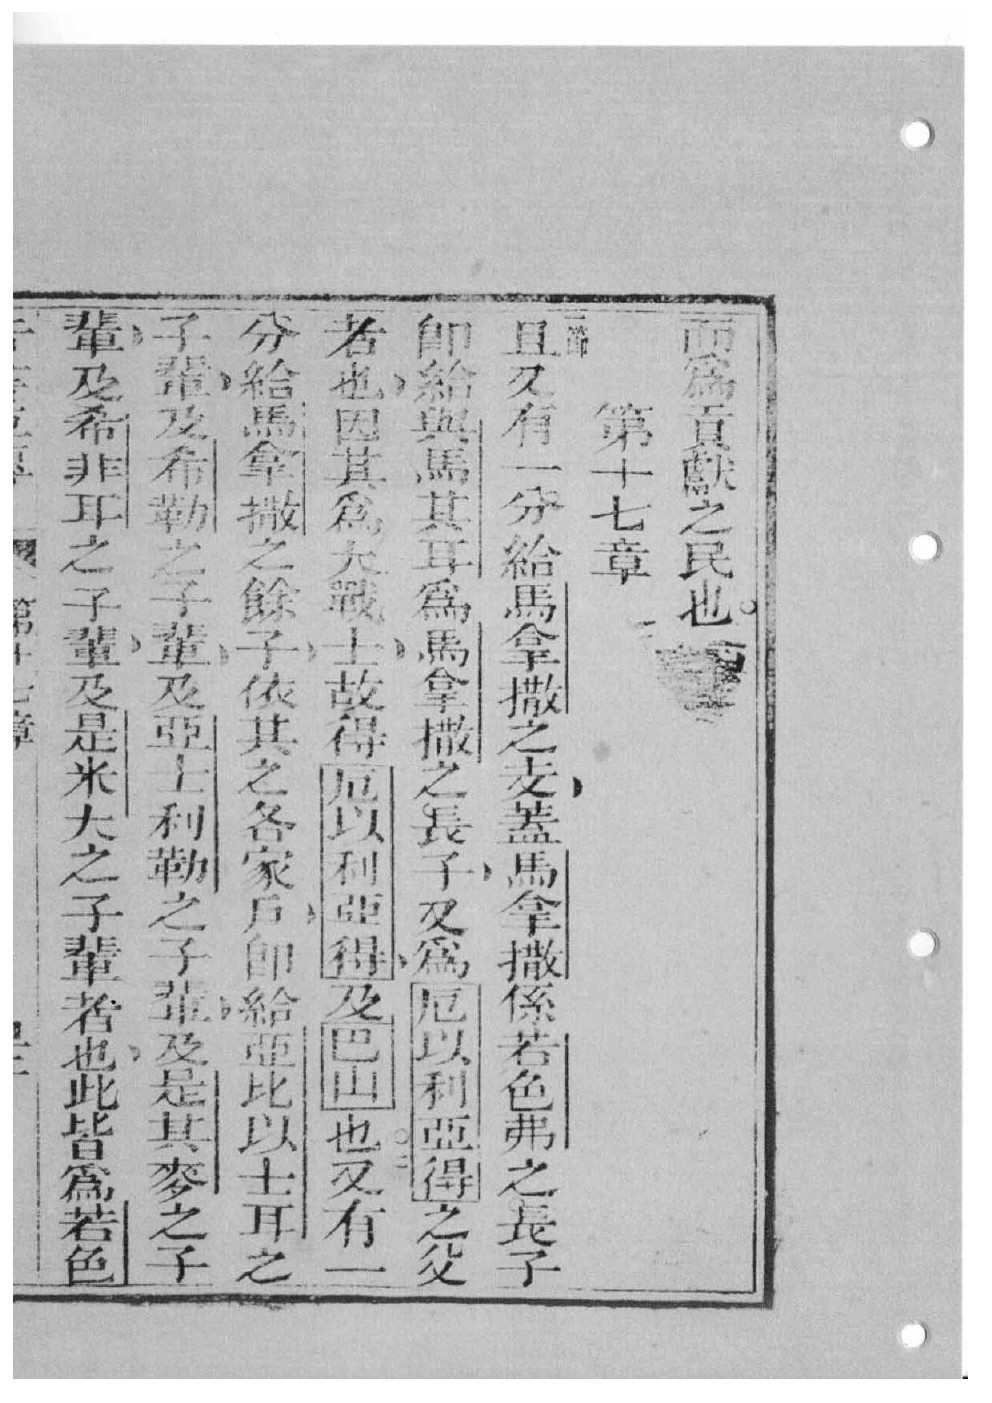 而爲貢獻之民也。
第十七章
一節
且又有一分給馬拿撒之支蓋馬拿撒係若色弗之長子
即給與馬其耳爲馬拿撒之長子又爲厄以利亞得之父
者也因其爲大戰士故得厄以利亞得及巴山也○二又有一
分給馬拿撒之餘子依其之各家戶即給亞比以士耳之
子輩及希勒之子輩及亞士利勒之子輩及是其麥之子
輩及希非耳之子輩及是米大之子輩者也此皆爲若色
第十七章